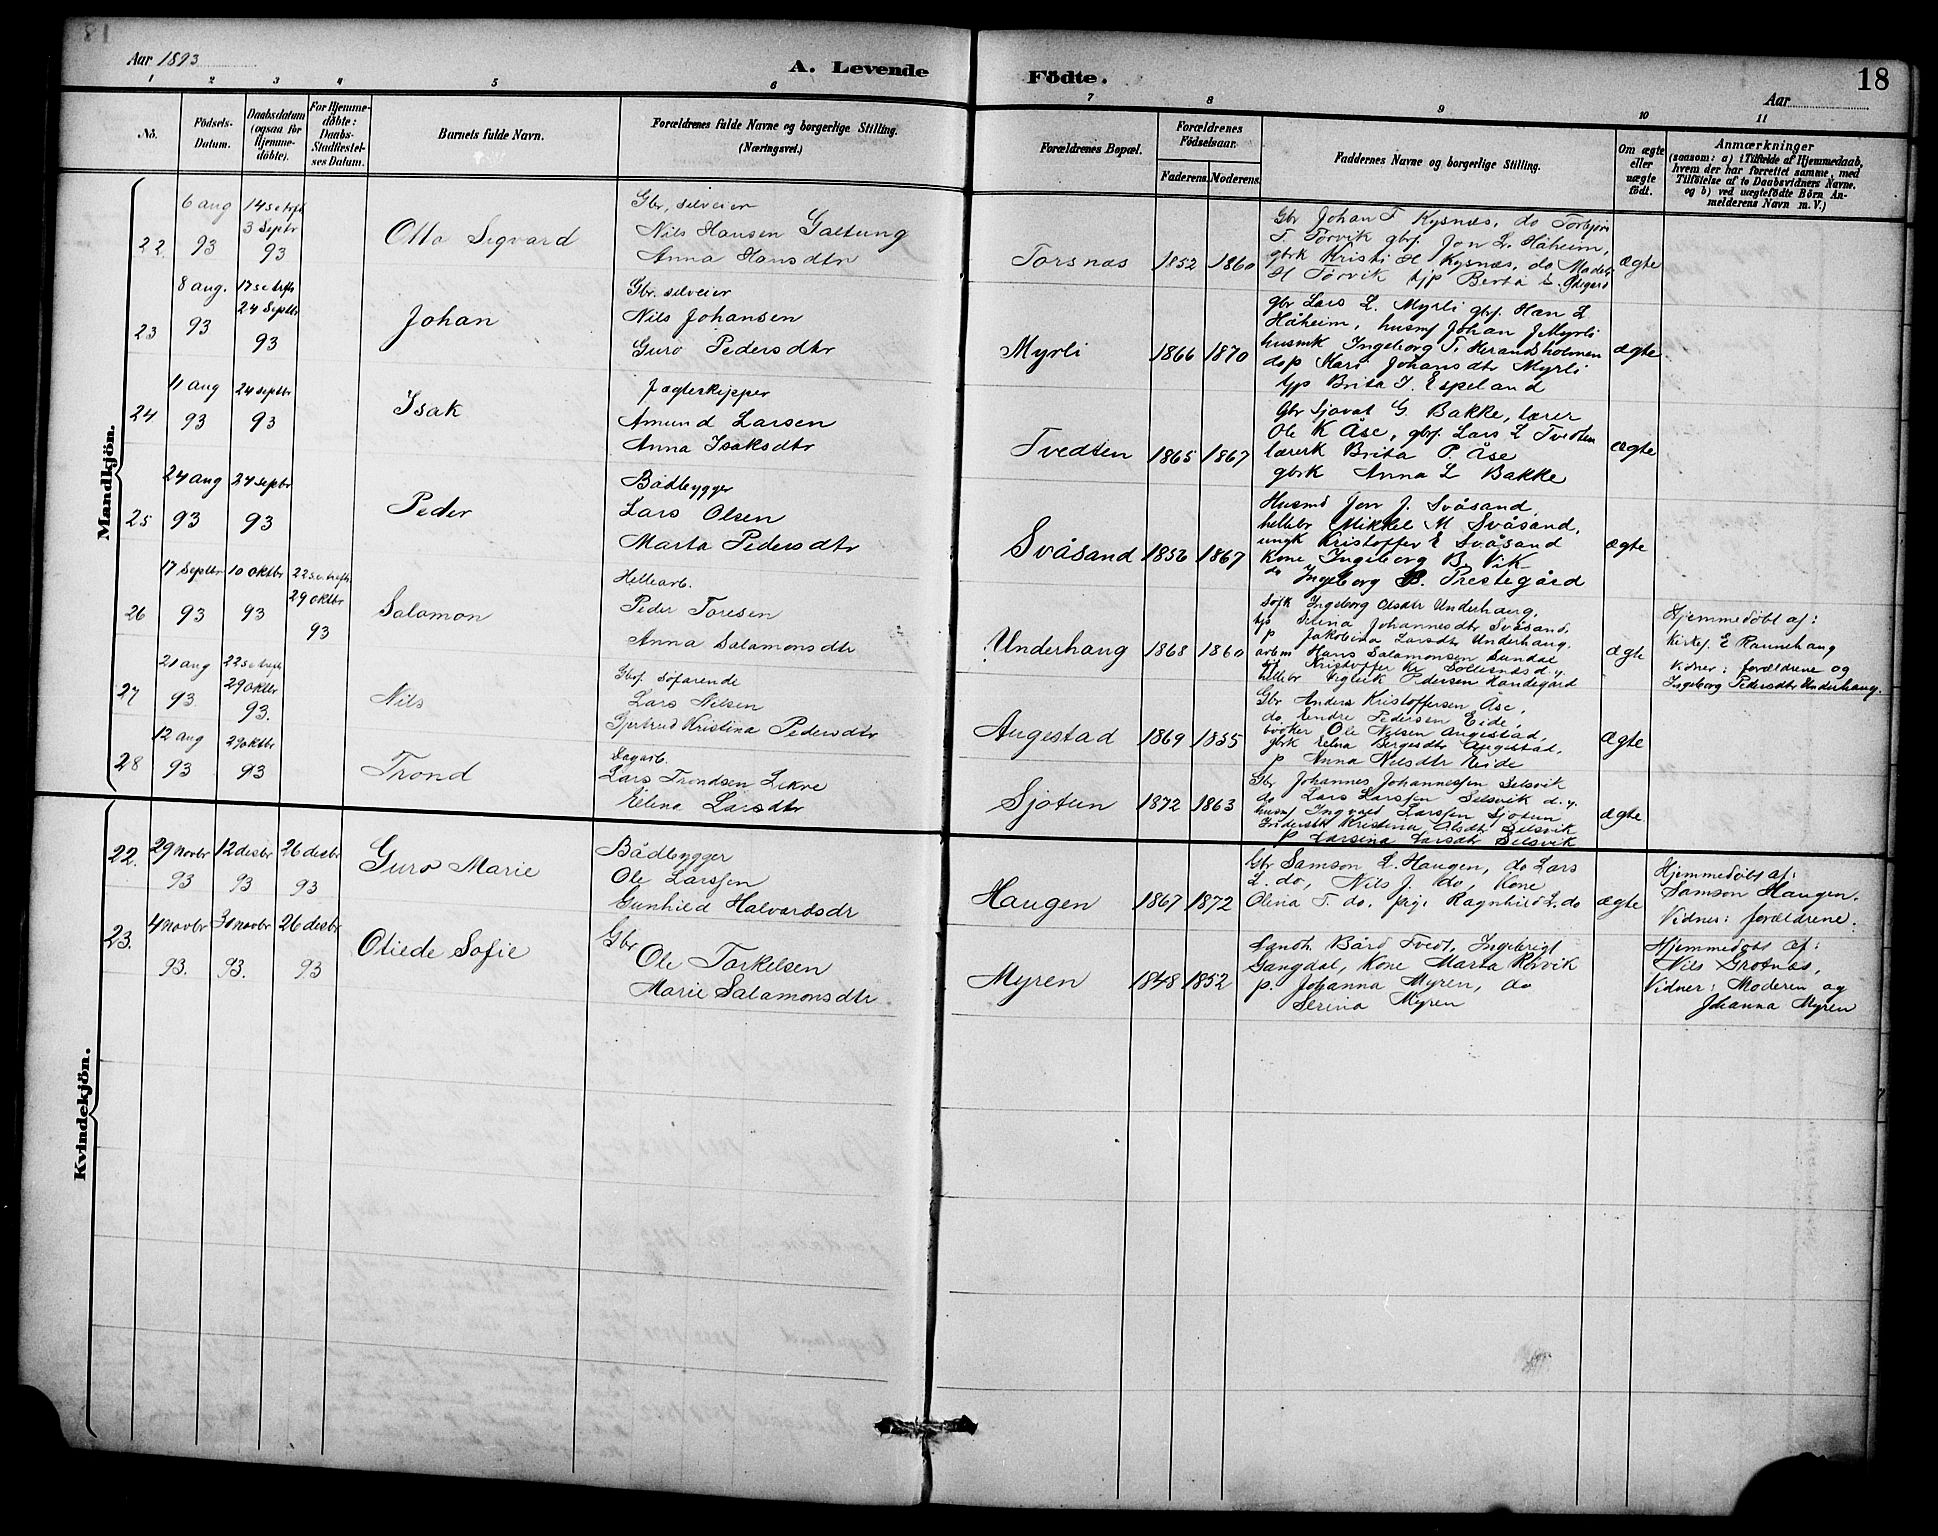 18
Aar 1893
A. Levende
Födte.
Aar
1 2 3 4 5 6 7 8 9 10 11
No.
Födsels-Datum.
Daabsdatum (ogsaa for Hjemme-döbte).
For Hjemme-döbte: Daabs-Stadfæstel-ses Datum.
Barnets fulde Navn.
Forældrenes fulde Navne og borgerlige Stilling. (Næringsvei.)
Forældrenes Bopæl.
Forældrenes Födselsaar.
Faderens. Moderens.
Faddernes Navne og borgerlige Stilling.
Om ægte eller uægte födt.
Anmærkninger
(saasom: a) i Tilfælde af Hjemmedaab,
hvem der har forrettet samme, med
Tilföielse af to Daabsvidners Navne.
og b) ved uægtefödte Börn An-
melderens Navn m. V.)
Mandkjön.
22. 6 aug 93
14 s e treft 3 Septbr 93
Otto Sigvard
Gbr, selveier
Nils Hansen Galtung
Anna Hansdtr
Torsnæs 1852 1860
Gbr Johan T Kysnæs, do Torbjörn
T. Törvik gbrf. Jon L. Håheim,
gbrk Kristi H Kysnæs, do
H Törvik tjp Berta
ægte
23 8 aug. 93
17 s e trefts 24 Septbr 93
Johan
Gbr. selveier
Nils Johansen
Guro Pedersdtr
Myrli 1866 1870
gbr Lars L. Myrli gbf. Han L
Håheim, husmf Johan J Myrli
husmk Ingeborg T. Herandsholmen
do p Kari Johansdtr Myrli
tjp Brita I. Espeland
ægte
24 11 aug 93
24 septbr 93
Isak
Jægteskipper
Amund Larsen
Anna Isaksdtr
Tvedten 1865 1867
gbr Sjovat G. Bakke, lærer
Ole K Åse, gbrf. Lars L Tvedten
lærerk Brita P. Åse
gbrk Anna L Bakke
ægte
25 24 aug 93
24 septbr 93
Peder
Bådbygger
Lars Olsen
Marta Pedersdtr
Svåsand 1856 1867
Husmd Jon J. Svåsand,
hellebr Mikkel M Svåsand,
ungk Kristoffer E Svåsand
Kone Ingeborg B. Vik
do Ingeborg B. Prestegård
ægte
26 17 Septbr 93
10 oktbr 93
22 s e trefts 29 oktbr 93
Salamon
Hellearb.
Peder Toresen
Anna Salamonsdtr
Underhaug 1868 1860
Ingeborg Olsdtr Underhaug,
tjp Elina Johannesdtr Svåsand,
p Jakobina Larsdtr Underhaug,
arbm Hans Salamonsen Sundal
Kristoffer
hellebr Pedersen Handegård
ægte
Hjemmedöbt af:
Kirkes. E Raunehaug
Vidner: forældrene og
Ingeborg Pedersdtr Underhaug.
27 21 aug 93
22 s e trefts 29 oktbr 93.
Nils
Gbrf. söfarende
Lars Nilsen
Gjertrud Kristina Pedersdtr
Augestad 1869 1855
Gbr Anders Kristoffersen Åse,
do. Endre Pedersen Eide,
Ole Nilsen Augestad,
gbrk Elina Bergesdtr Augestad,
p Anna Nilsdtr Eide
ægte
28 12 aug 93
29 oktbr 93
Trond
Sagarb.
Lars Trondsen Lekve
Elina Larsdtr
Sjotun 1872 1863
Gbr Johannes Johannessen Selsvik
do Lars Larssen Selsvik d. y.
husmf Ingvald Larssen Sjotun
Kristina Olsdtr Selsvik
p Larsina Larsdtr Selsvik
ægte
Kvindekjön.
22. 29 novbr 93
12 desbr 93
26 desbr 93
Guro Marie
Bådbygger
Ole Larssen
Gunhild Halvardsdr
Haugen 1867 1872
Gbr Samson L. Haugen, do Lars
L. do, Nils J. do, Kone
Olina T. do, Ragnhild L. do
ægte
Hjemmedöbt af:
Samson Haugen.
Vidner: forældrene.
23. 4 novbr 93.
30 novbr 93.
26 desbr 93
Oliede Sofie
Gbr
Ole Torkelsen
Marie Salamonsdtr
Myren 1848 1852
Sandh. Bård Tvedt, Ingebrigt
Gangdal, Kone Marta Rörvik
p. Johanna Myren, do
Serina Myren
Hjemmedöbt af:
Nils Grotnæs,
Vidner: Moderen og
Johanna Myren